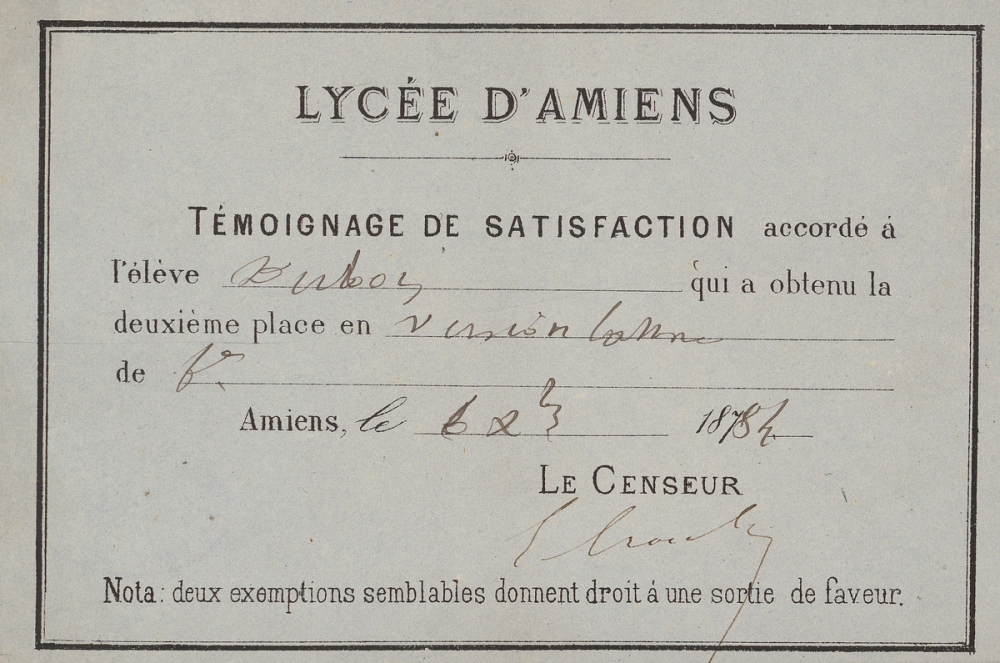 LYCÉE D'AMIENS
TÉMOIGNAGE DE SATISFACTION accordé á
l'élève Dubois qui a obtenu la
deuxième place en version latine
de
Amiens, le 1884
LE CENSEUR
Nota : deux exemptions semblables donnent droit á une sortie de faveur.